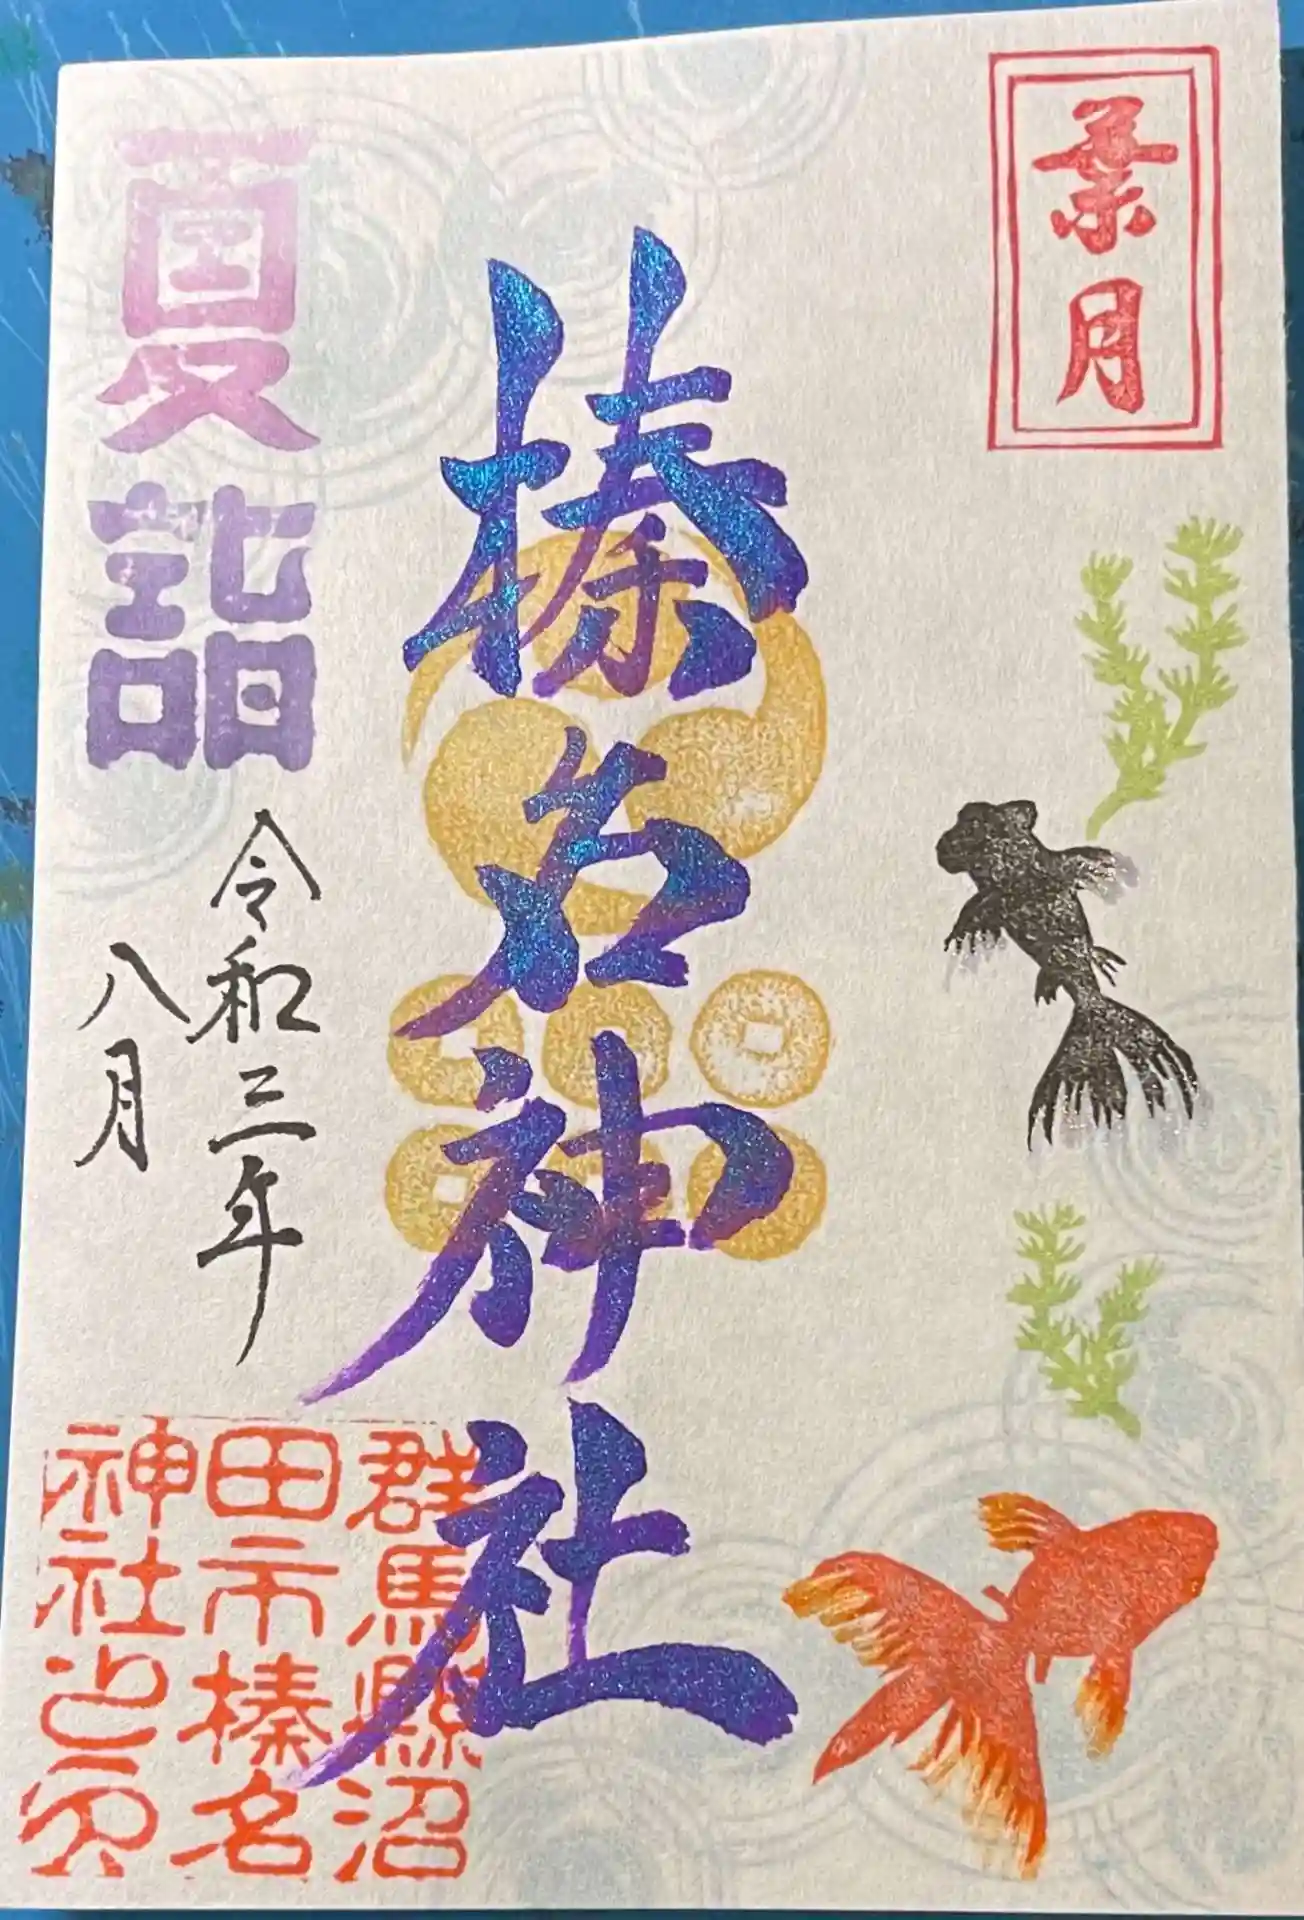 葉月
榛名神社
夏詣
令和三年
八月
群馬縣沼
田市榛名
神社之印